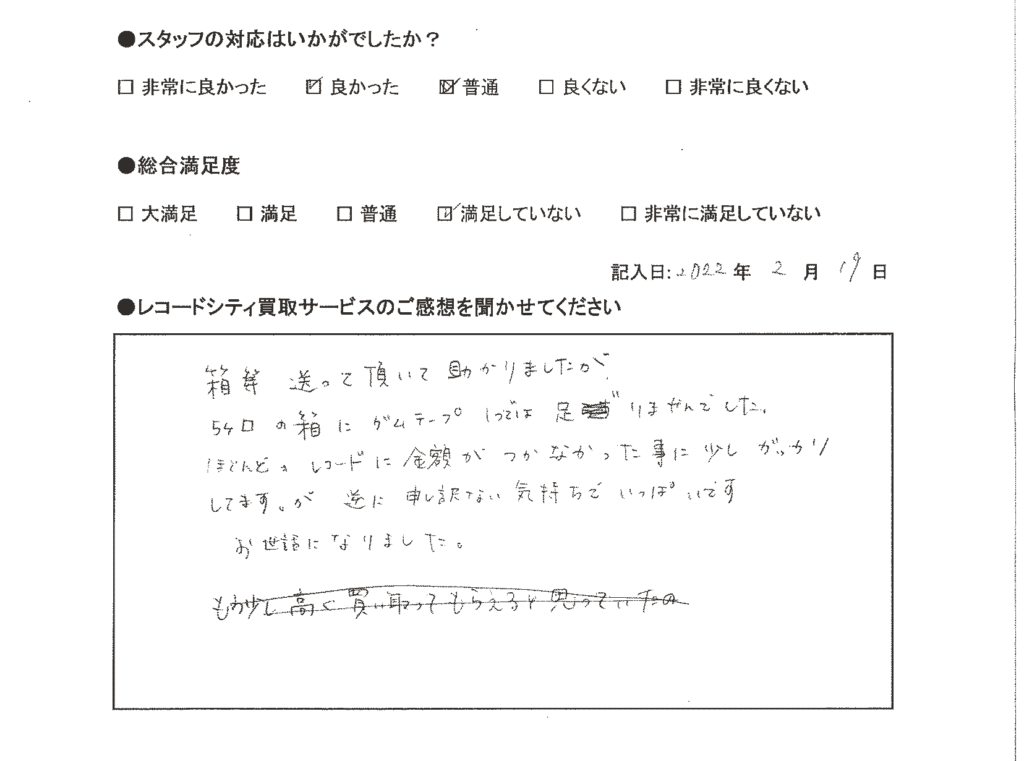 ●スタッフの対応はいかがでしたか？
□ 非常に良かった ☑ 良かった ☑ 普通 □ 良くない □ 非常に良くない
●総合満足度
□ 大満足 □ 満足 □ 普通 ☑ 満足していない □ 非常に満足していない
記入日:2022 年 2 月 19 日
●レコードシティ買取サービスのご感想を聞かせてください
箱等 送って頂いて助かりましたが、
54口の箱にガムテープ1つでは足りませんでした。
ほとんどのレコードに金額がつかなかった事に少しがっかり
してます。が 逆に申し訳ない気持ちでいっぱいです
お世話になりました。
もう少し高く買い取ってもらえると思っていたの